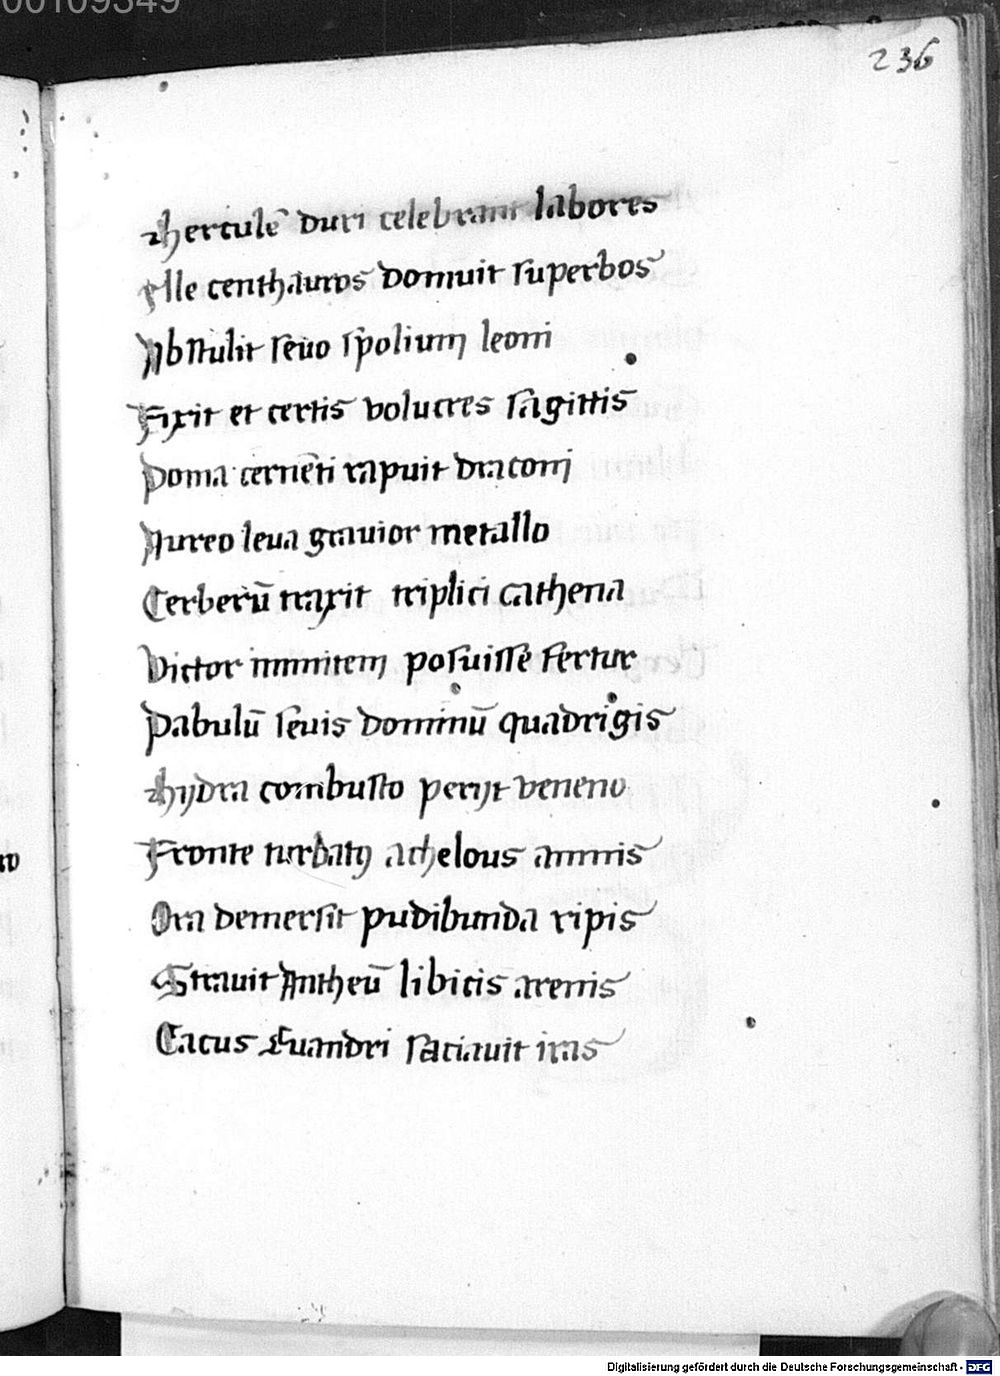 00109349
236
Herculē duri celebrant labores
Ille centhauros domuit superbos
Abstulit seuo spolium leoni
Fixit et certis volucres sagittis
Poma cernēti rapuit draconi
Aureo leua grauior metallo
Cerberū traxit triplici cathena
Victor inmitem posuisse fertur
Pabulū seuis dominū quadrigis
Hydra combusto perijt veneno
Fronte turbatꝯ achelous amnis
Ora demersit pudibunda ripis
Strauit Antheū libicis arenis
Cacus Euandri saciauit iras
Digitalisierung gefördert durch die Deutsche Forschungsgemeinschaft - DFG